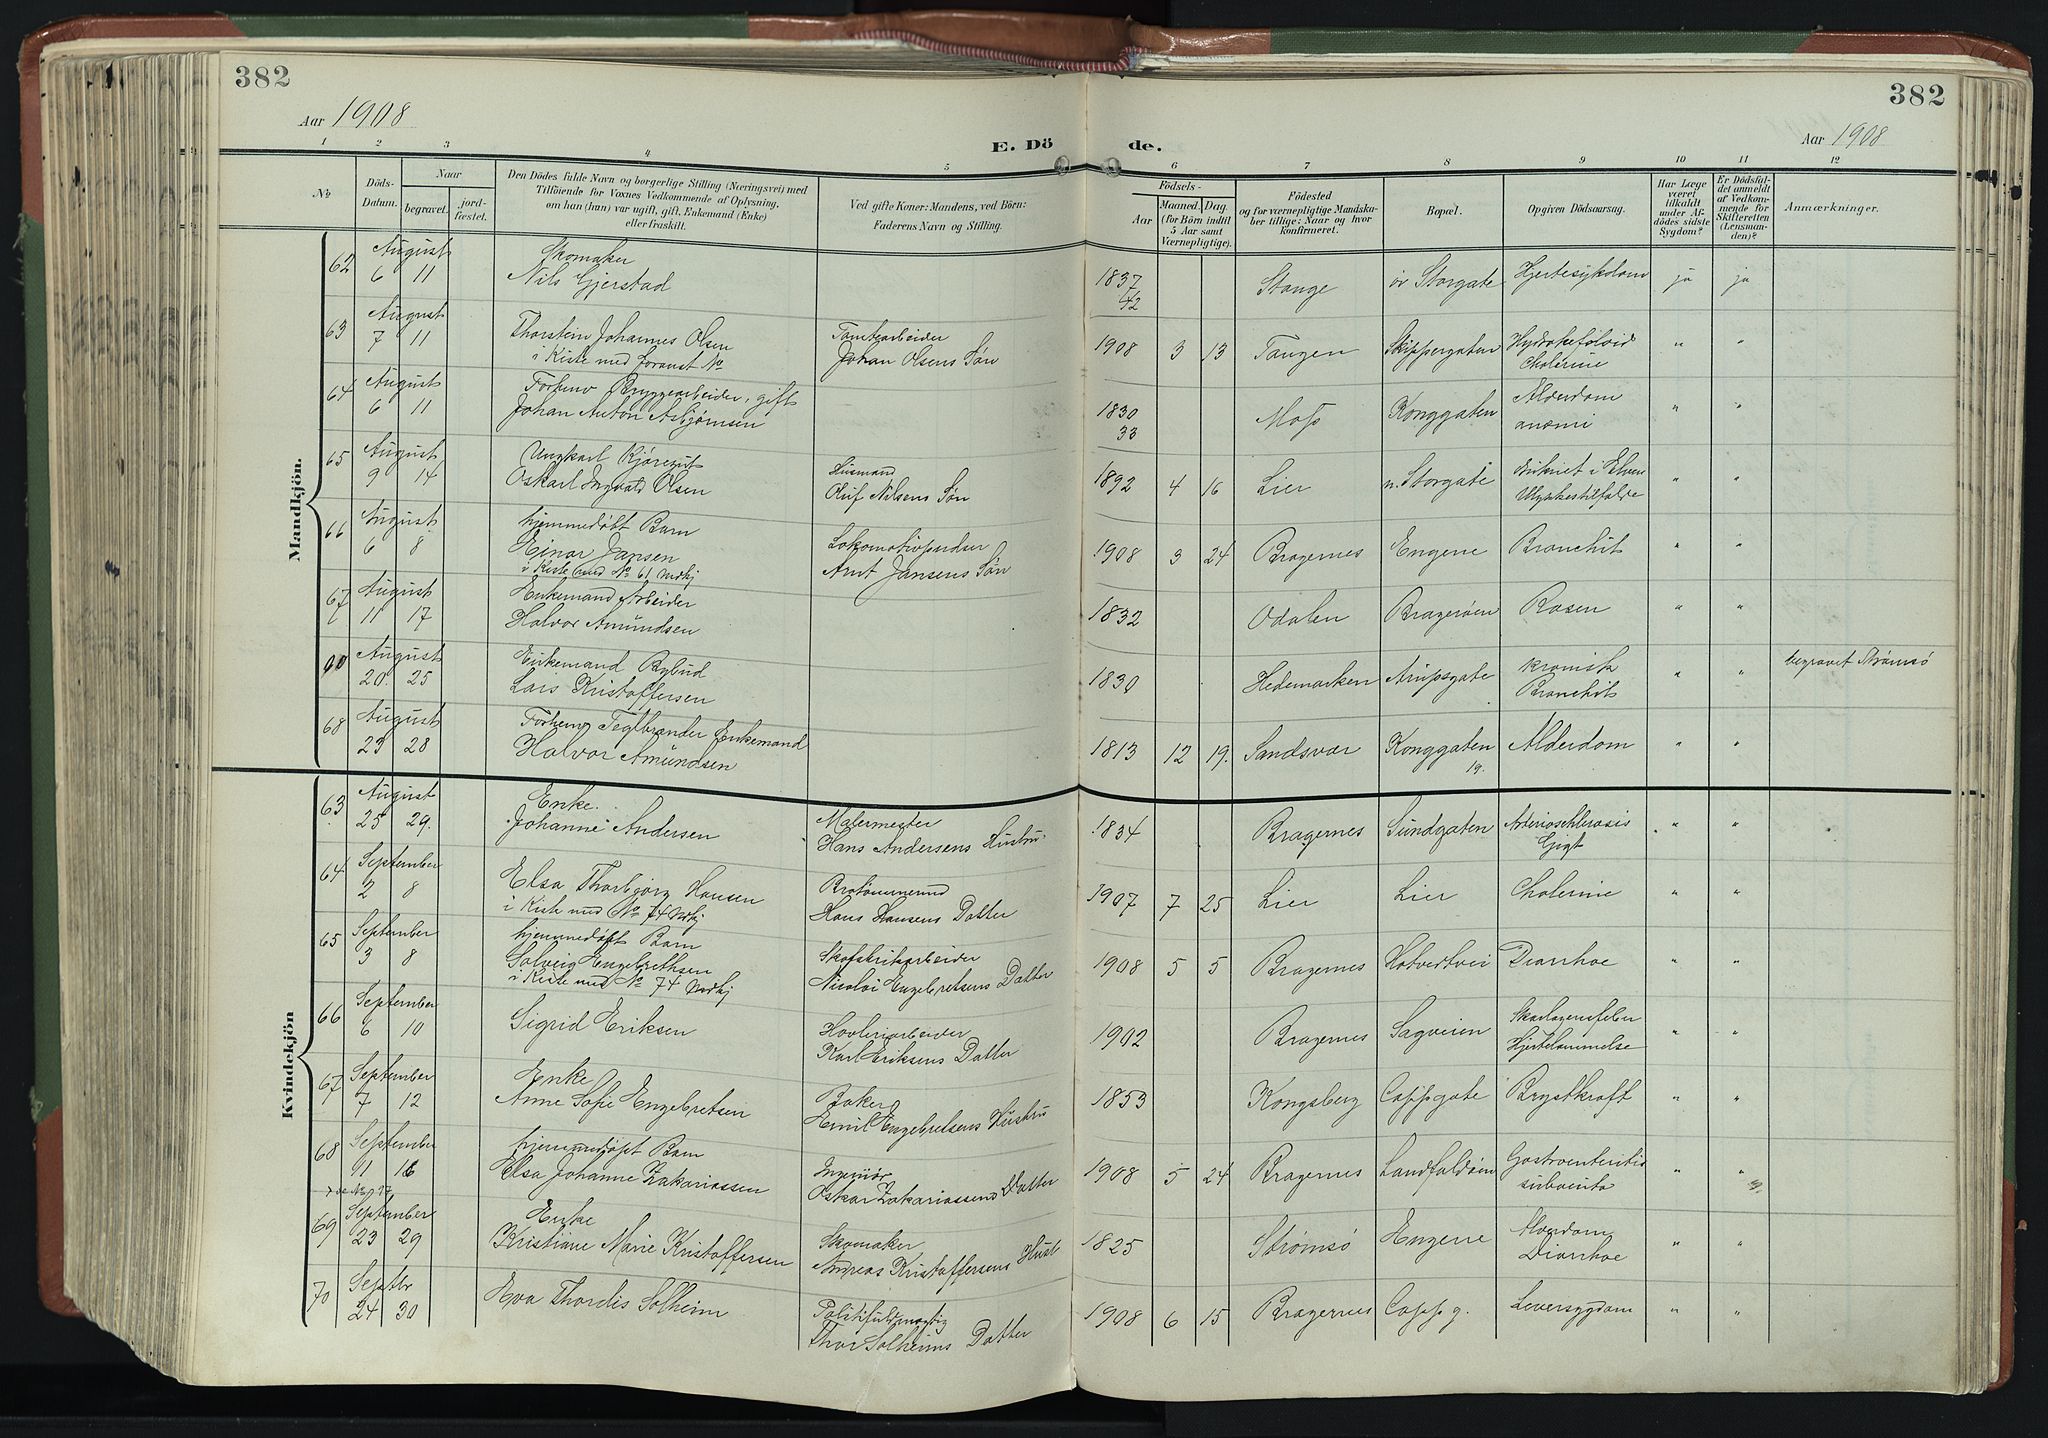 382
382
Aar 1908
Aar 1908
E. Dö de.
1 2 3 4 5 6 7 8 9 10 11 12
№
Döds-Datum.
Naar
begravet.
jord-fæstet.
Den Dödes fulde Navn og borgerlige Stilling (Næringsvei) med
Tilföiende for Voxnes Vedkommende af Oplysning,
om han (hun) var ugift, gift, Enkemand (Enke)
eller fraskilt.
Ved gifte Koner: Mandens, ved Börn:
Faderens Navn og Stilling.
Födsels-
Aar
Maaned. Dag.
(for Börn indtil
5 Aar samt
Værnepligtige).
Födested
og for værnepligtige Mandska-
ber tillige: Naar og hvor
konfirmeret.
Bopæl.
Opgiven Dödsaarsag.
Har Læge
været
tilkaldt
under Af-
dödes sidste
Sygdom?
Er Dödsfal-
det anmeldt
af Vedkom-
mende for
Skifteretten
(Lensman-
den)?
Anmærkninger.
Mandkjön.
62 August Skomaker
6 11 Nils Gjerstad 1837 Stange öv Storgate Hjertesykdom ja ja
42
63 August Thorstein Johannes Olsen Tomtearbeider
7 11 i Kiste med foranst No Johan Olsens Søn 1908 3 13 Tangen Skippergaten Hydrokefoloid " "
Cholerine
64 August Forhenv Bryggearbeider, gift Alderdom
6 11 Johan Anton Asbjørnsen 1830 Moss Konggaten anæmi " "
33
65 August Ungkarl Kjøregut Husmand
9 14 Oskarl Ingvald Olsen Oluf Nilsens Søn 1892 4 16 Lier n. Storgate druknet i Elven " "
Ulykkestilfælde
66 August hjemmedøbt Barn Lokomotivpudser
6 8 Einar Jansen Arnt Jansens Søn 1908 3 24 Bragernes Engene Bronchit " "
i Kiste med No 61 Mdkj
67 August Enkemand Arbeider
11 17 Halvor Amundsen 1832 Odalen Bragerøen Rosen " "
August Enkemand Bybud kronisk
20 25 Lars Kristoffersen 1830 Hedemarken Arupsgate Bronchit " " begravet Strømsø
68 August Forhenv Teglbrænder Enkemand
23 28 Halvor Amundsen 1813 12 19. Sandsvær Konggaten Alderdom " "
19.
Kvindekjön
63 August Enke. Malermester
25 29. Johanne Andersen Hans Andersens Hustru 1834 Bragernes Sundgaten Arterioschlerosis " "
Gigt
64 September Elsa Thorbjørg Hansen
2 8 i Kiste med No 74 Mdkj Hans Hansens Datter 1907 7 25 Lier Lier Cholerine " "
65 September hjemmedøbt Barn Skofabrikarbeider
3 8 Solveig Engebrethsen Nicolai Engebretsens Datter 1908 5 5 Bragernes Hotvedtvei Diarrhoe " "
i Kiste med No 74 Mdkj
66 September Sigrid Eriksen Høvleriarbeider Skarlagensfeber
6 10 Karl Eriksens Datter 1902 Bragernes Sagveien Hjertelammelse " "
67 September Enke Baker
7 12 Anne Sofie Engebretsen Emil Engebretsens Hustru 1853 Kongsberg Cappgate Brystkræft " "
68 September hjemmedøbt Barn Ingeniør
11 16 Elsa Johanne Zakariassen Oskar Zakariassens Datter 1908 5 24 Bragernes Landfaldøen Gastroenteritis " "
subacuta
69 September Enke Skomaker
23 29 Kristiane Marie Kristoffersen Andreas Kristoffersens Hustr 1825 Strømsø Engene Alderdom " "
Diarrhoe
70 Septbr Eva Thordis Solheim Politifuldmægtig
24 30 Thor Solheims Datter 1908 6 15 Bragernes Capp g. Leversygdom " "